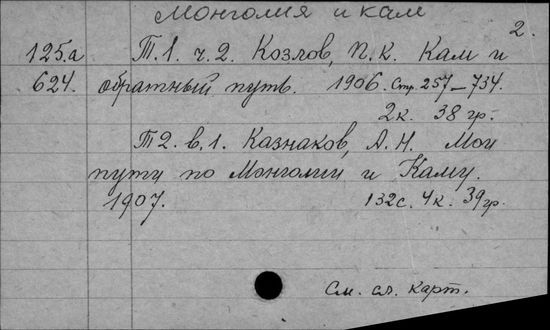 Монголия и кам
2.
125.а Т.1. ч.2. Козлов, П.К. Кам и
624. обратный путь. 1906. Стр. 257-734.
2к. 38 гр.
Т2. в.1. Казнаков, А.Н. Мои
пути по Монголии и Каму.
1907. 132с. 4к. 39гр.
См. сл. карт.